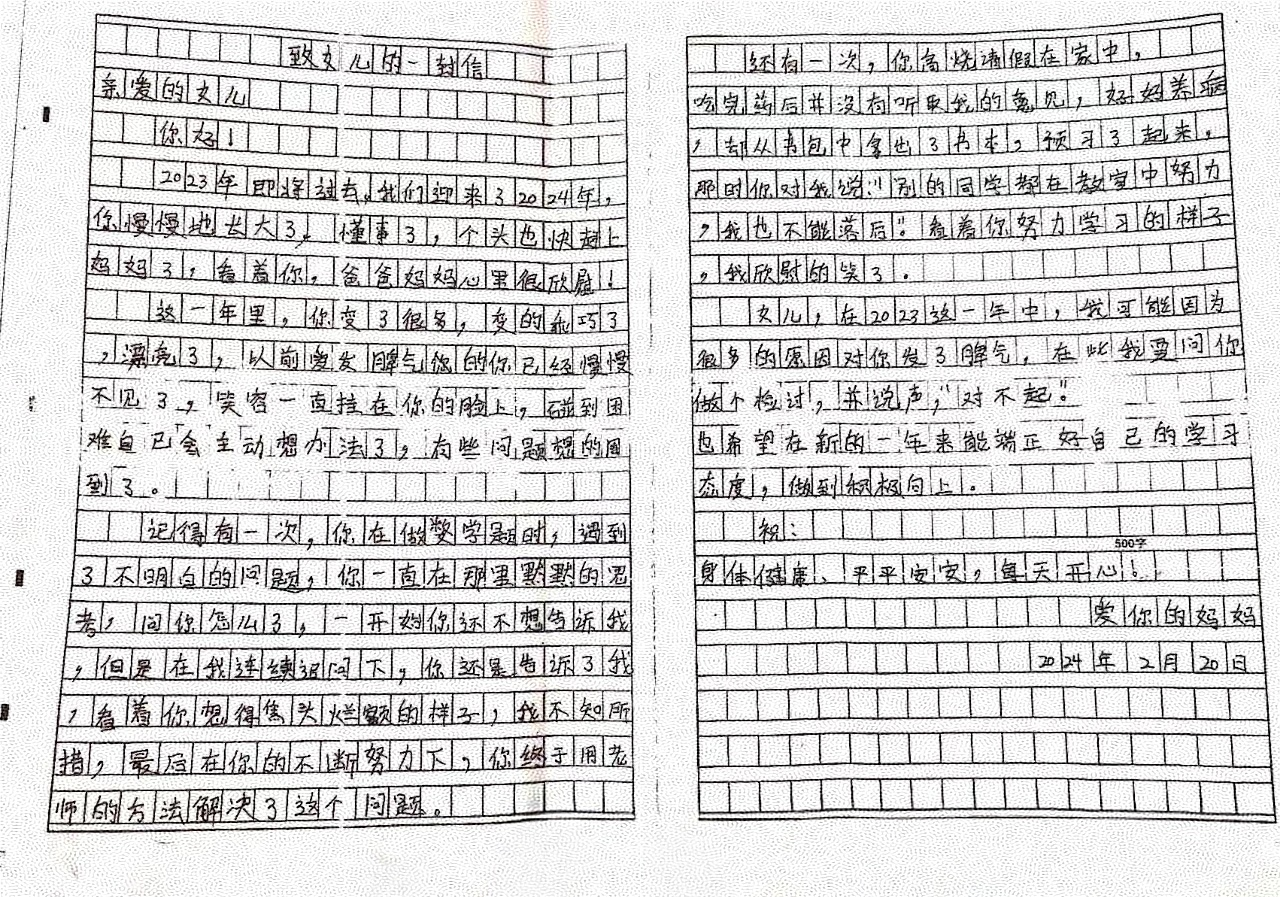 致女儿的一封信
亲爱的女儿
你好！
2023年即将过去，我们迎来了2024年，
你慢慢地长大了，懂事了，个头也快赶上
妈妈了，看着你，爸爸妈妈心里很欣慰！
这一年里，你变了很多，变的乖巧了
，漂亮了，以前爱发脾气的你已经慢慢
不见了，笑容一直挂在你的脸上，碰到困
难自己会主动想办法了，有些问题想的周
到了。
记得有一次，你在做数学题时，遇到
了不明白的问题，你一直在那里默默的思
考，问你怎么了，一开始你还不想告诉我
，但是在我连续追问下，你还是告诉了我
，看着你想得焦头烂额的样子，我不知所
措，最后在你的不断努力下，你终于用老
师的方法解决了这个问题。
还有一次，你高烧请假在家中，
吃完药后并没有听取我的意见，好好养病
，却从书包中拿出了书本，预习了起来，
那时你对我说："别的同学都在教室中努力
，我也不能落后"。看着你努力学习的样子
，我欣慰的笑了。
女儿，在2023这一年中，我可能因为
很多的原因对你发了脾气，在此我要问你
做个检讨，并说声，"对不起"。
也希望在新的一年来能端正好自己的学习
态度，做到积极向上。
祝：
500字
身体健康、平平安安，每天开心！
爱你的妈妈
2024年2月20日